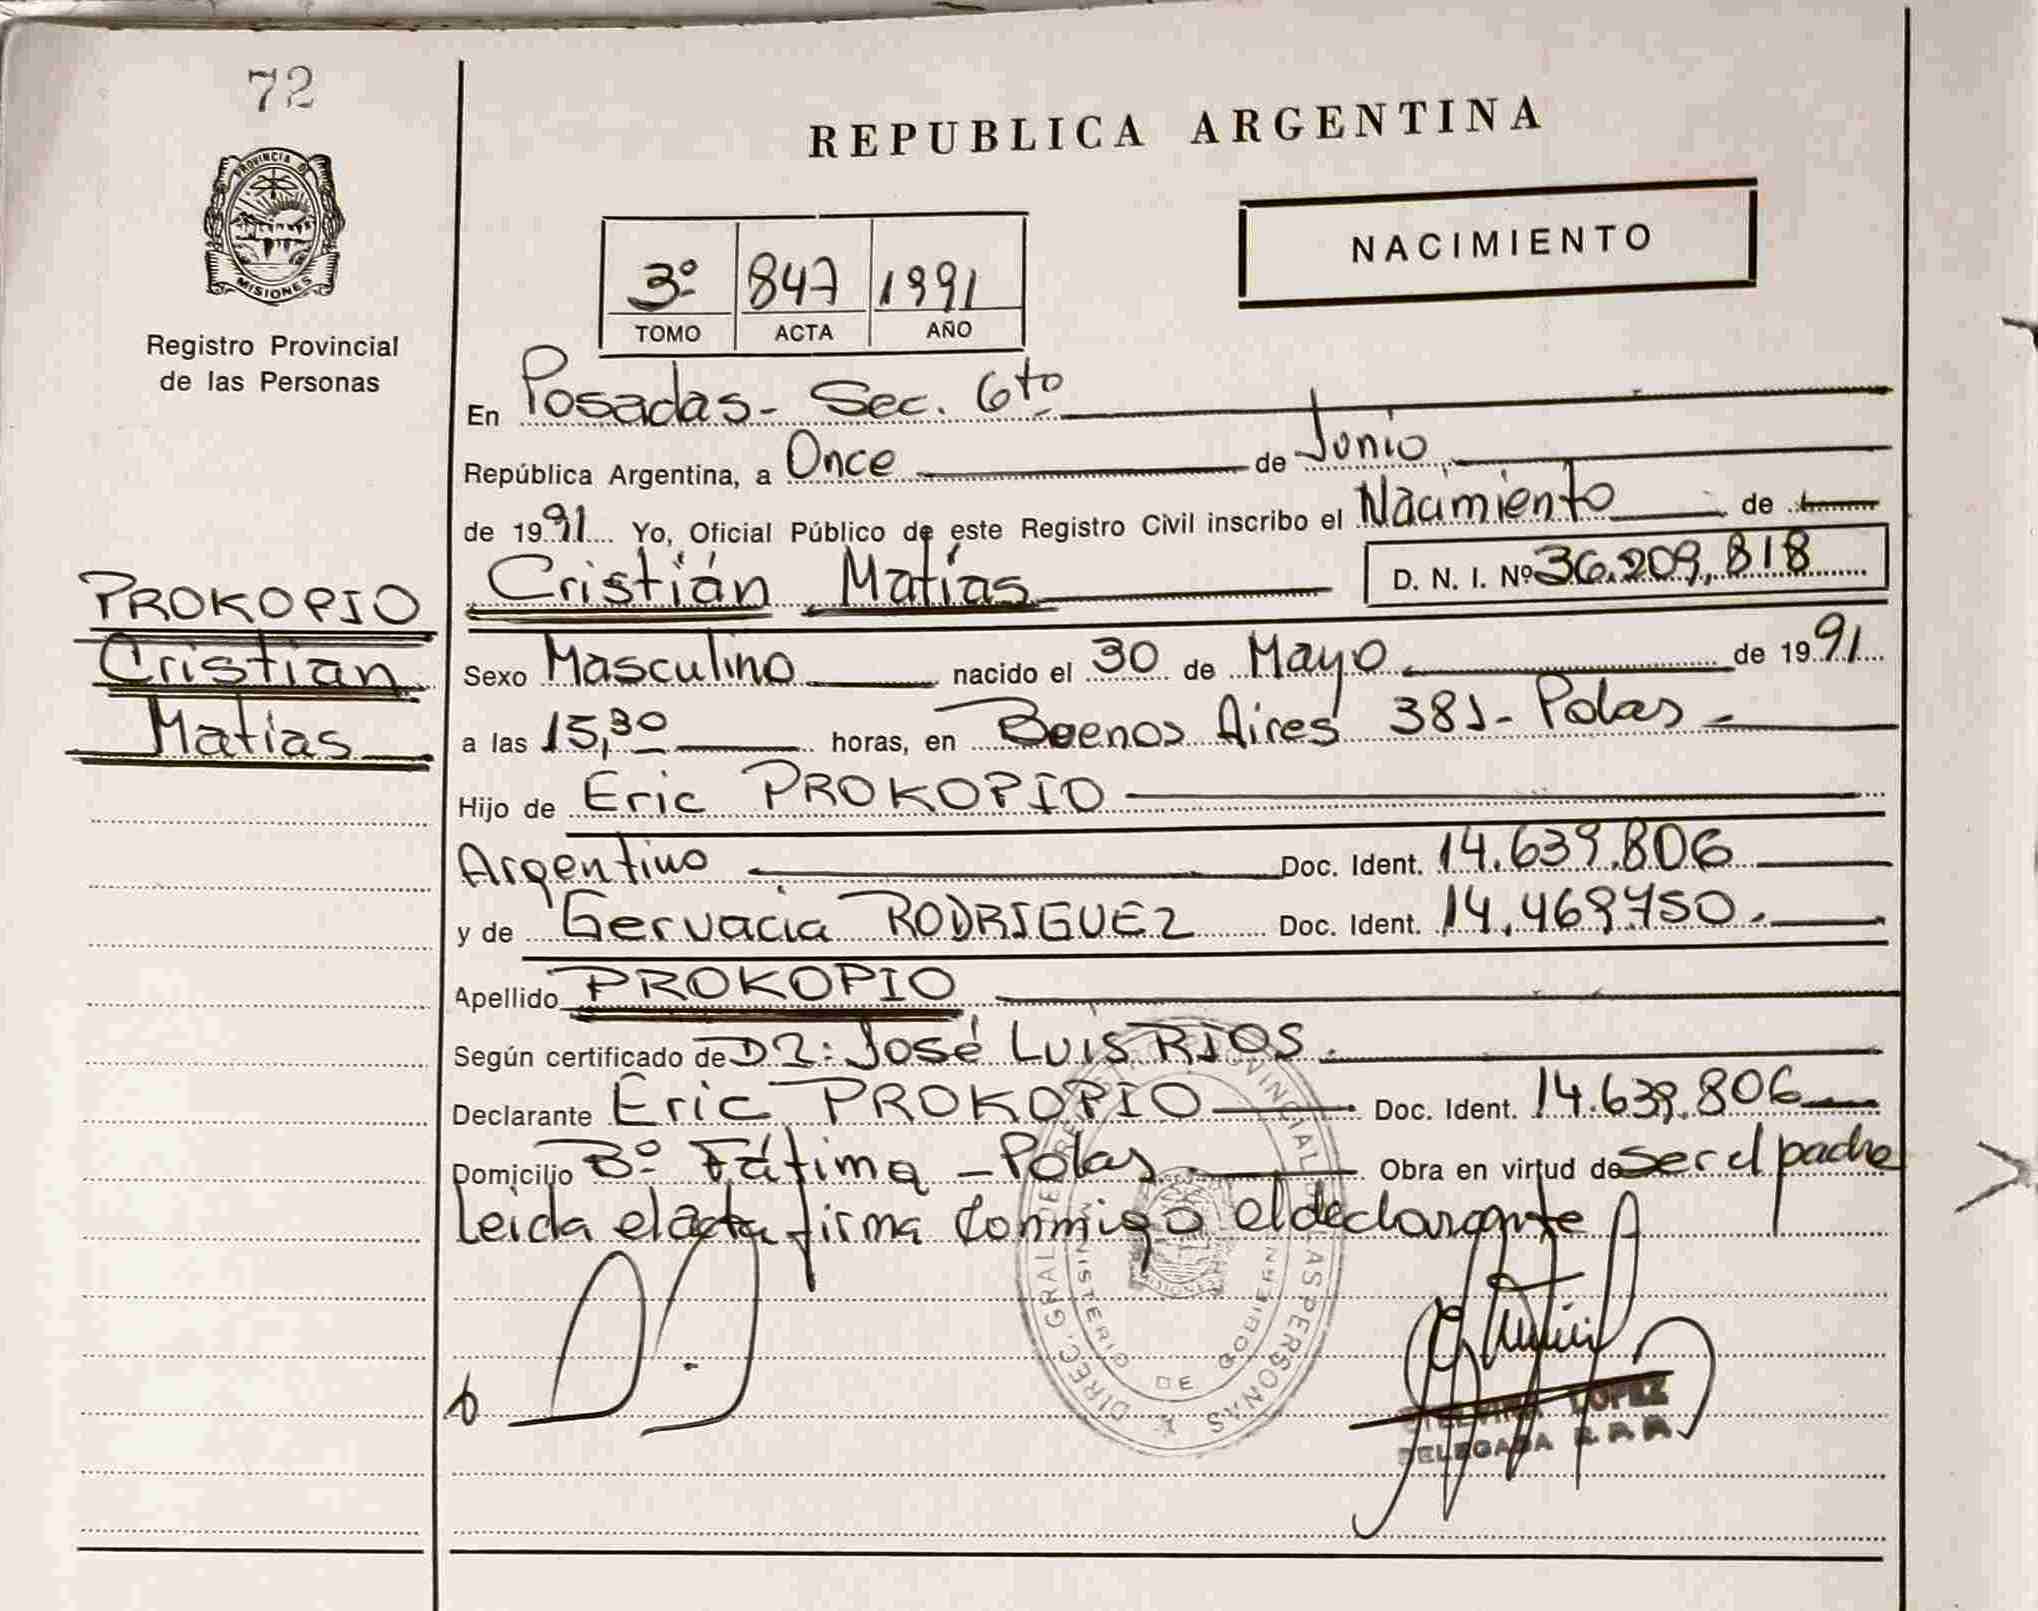 72
PROVINCIA DE
MISIONES
Registro Provincial
de las Personas
PROKOPIO
Cristian
Matías
REPUBLICA ARGENTINA
NACIMIENTO
3º 847 1991
TOMO ACTA AÑO
En Posadas - Sec. 6to
República Argentina, a Once de Junio
de 1991 Yo, Oficial Público de este Registro Civil inscribo el Nacimiento de
Cristián Matías D. N. I. Nº 36.209.818
Sexo Masculino nacido el 30 de Mayo de 1991
a las 15,30 horas, en Buenos Aires 381 - Pdas
Hijo de Eric PROKOPIO
Argentino Doc. Ident. 14.639.806
y de Gervacia RODRIGUEZ Doc. Ident. 14.469.750.-
Apellido PROKOPIO
Según certificado de Dr: José Luis RIOS.
Declarante Eric PROKOPIO Doc. Ident. 14.639.806
Domicilio Bº Fátima - Pdas Obra en virtud de ser el padre
Leida el acta firma conmigo el declarante
DIREC. GRAL DE REG PROVINCIAL DE LAS PERSONAS
MINISTERIO DE GOBIERNO
LOPEZ
DELEGADA